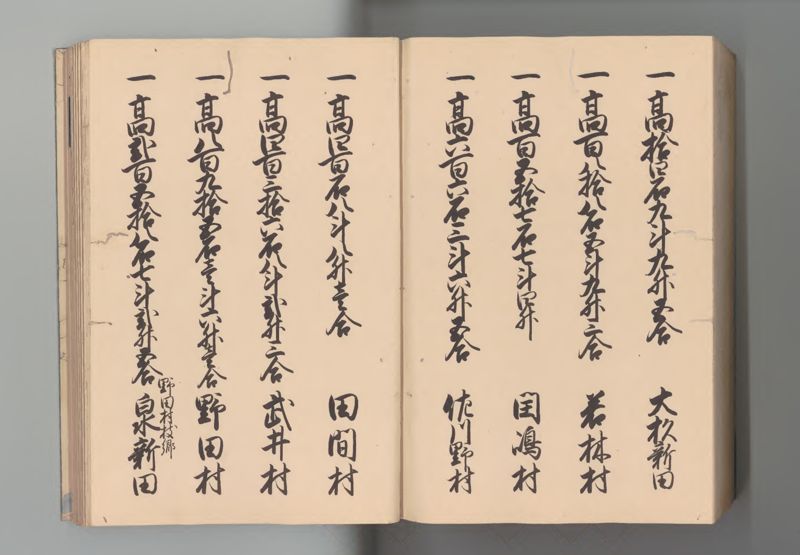 一高拾四石九斗九升五合 大杉新田
一高百八拾八石五斗九升二合 若林村
一高百五拾七石七斗四升 閏嶋村
一高六百六石三斗六升五合 佐川野村
一高四百石八斗八升壱合 田間村
一高四百三拾六石八斗弐升三合 武井村
一高八百九拾五石壱斗六升壱合 野田村
野田村枝郷
一高弐百五拾八石七斗弐升五合 泉新田